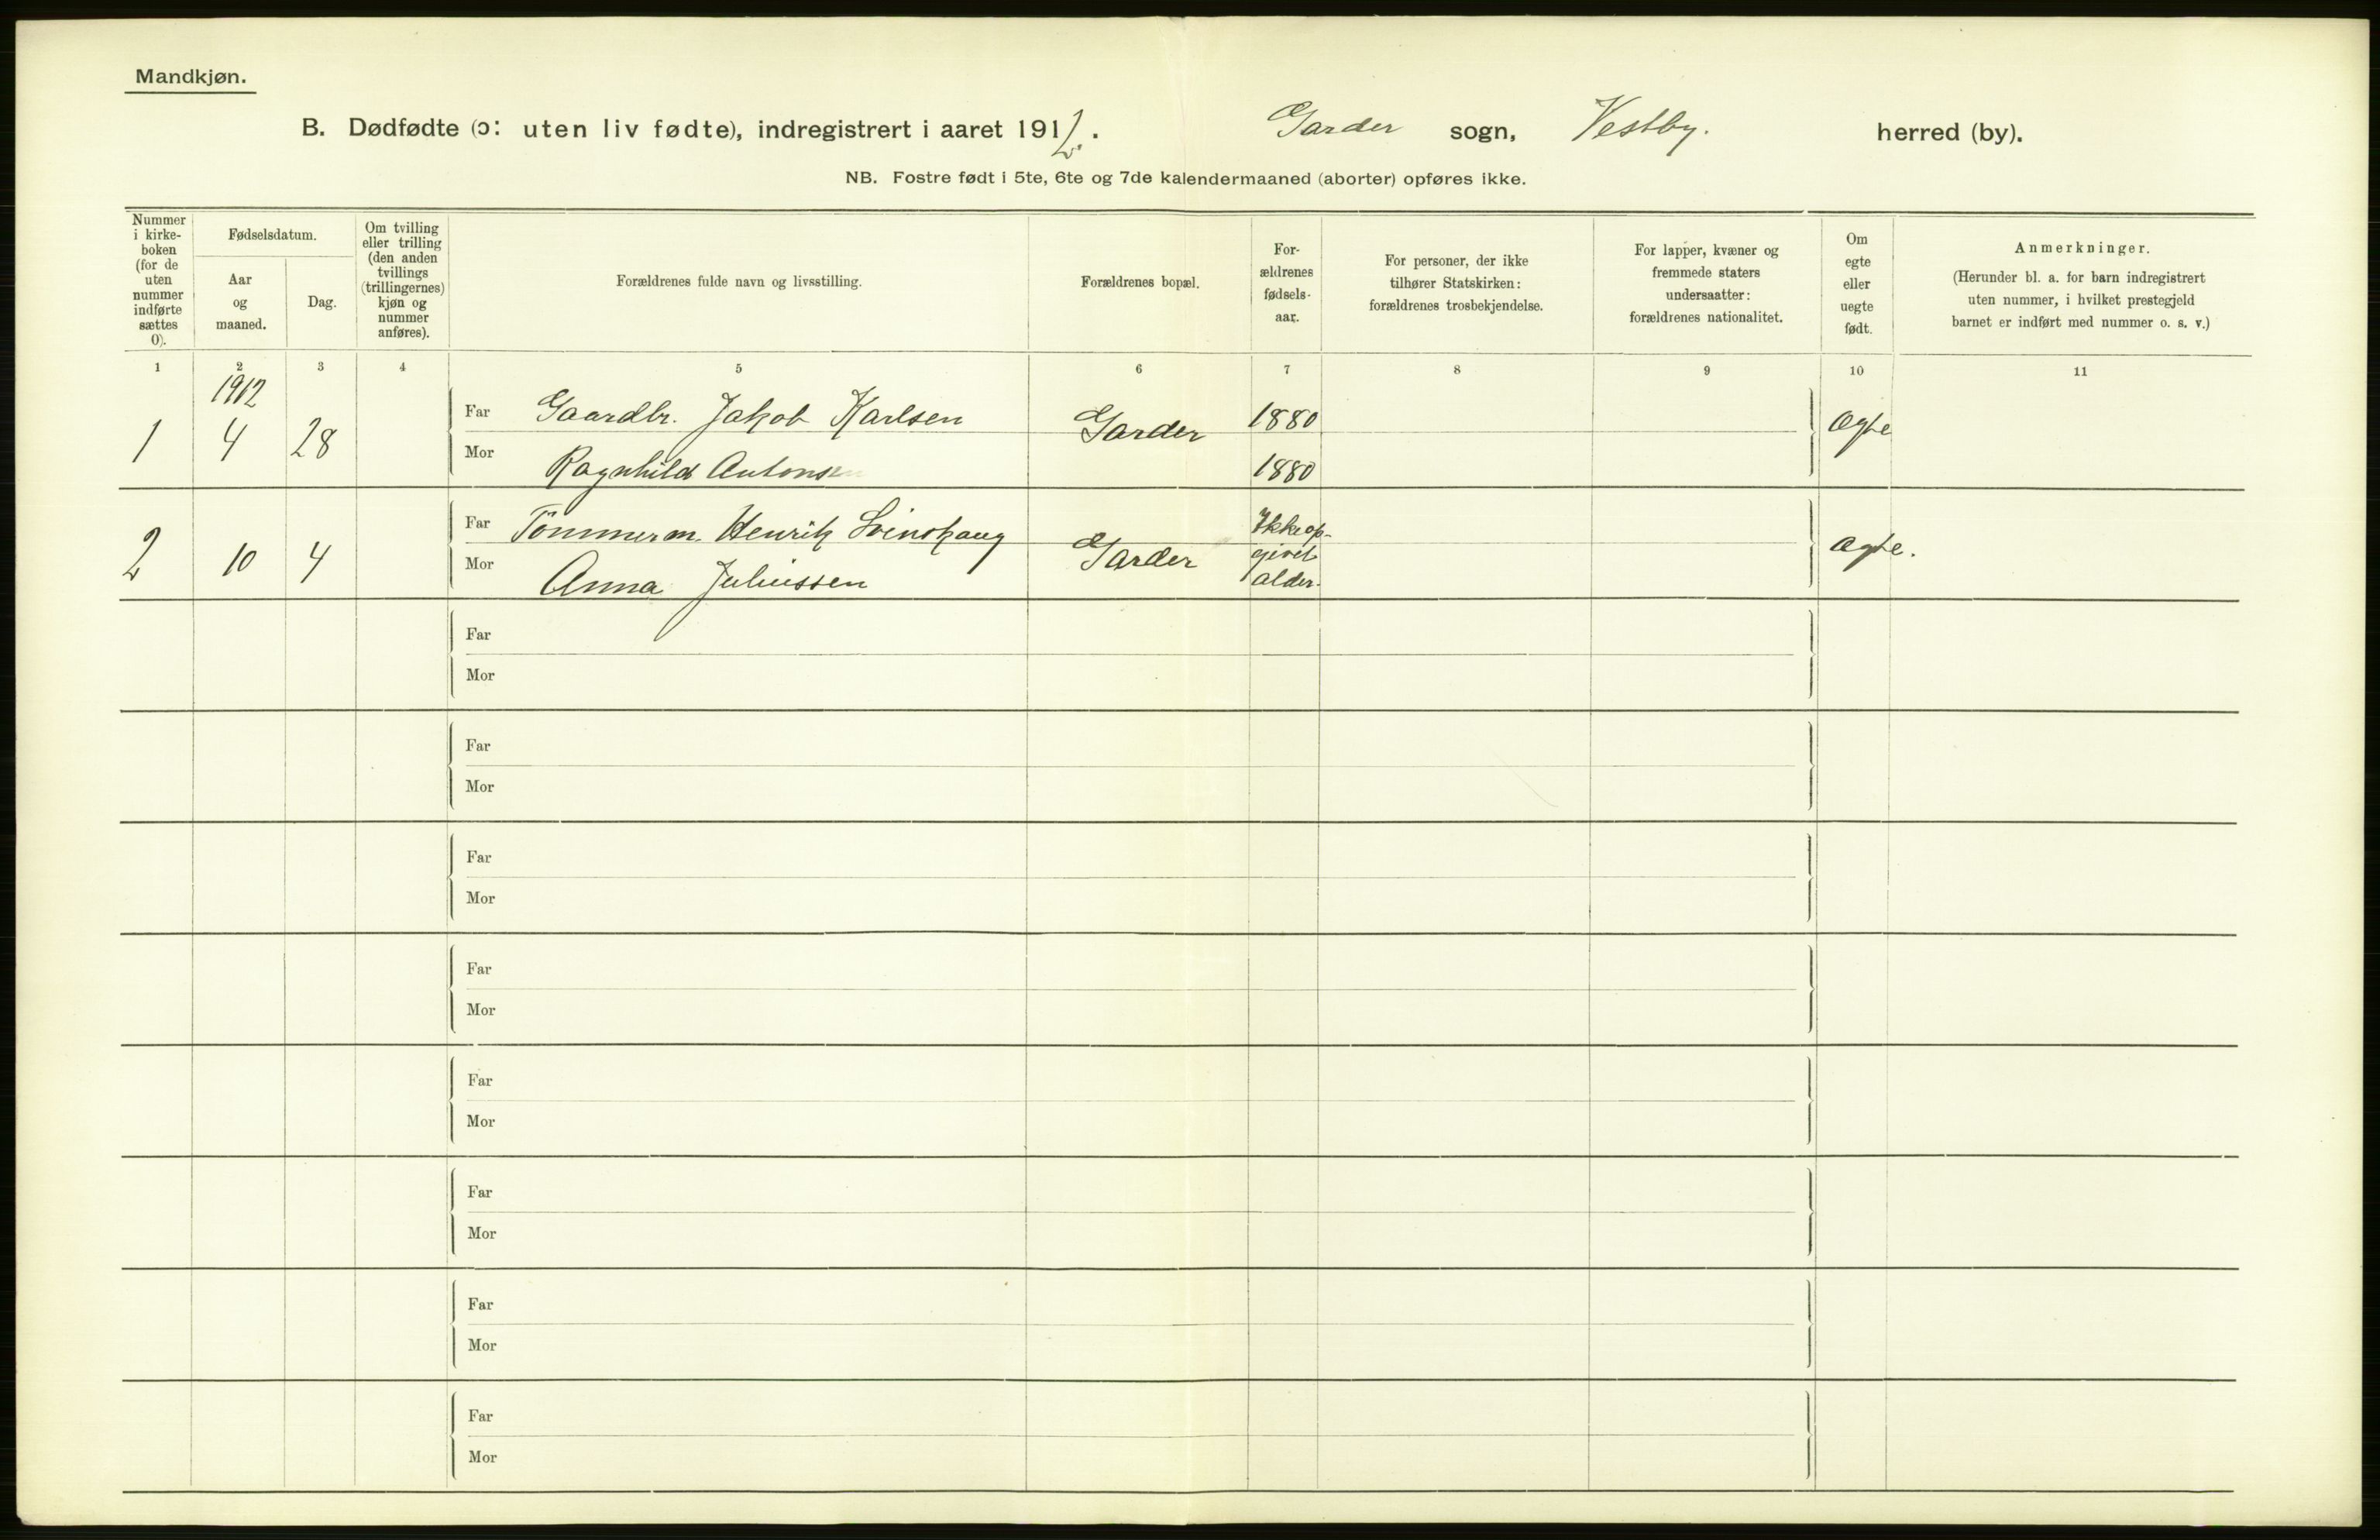 Mandkjøn.
B. Dødfødte (ɔ: uten liv fødte), indregistrert i aaret 1912. Garder sogn, Vestby. herred (by).
NB. Fostre født i 5te, 6te og 7de kalendermaaned (aborter) opføres ikke.
Nummer
i kirke-
boken
(for de
uten
nummer
indførte
sættes
0).
Fødselsdatum.
Aar
og
maaned.
Dag.
Om tvilling
eller trilling
(den anden
tvillings
(trillingernes)
kjøn og
nummer
anføres).
Forældrenes fulde navn og livsstilling.
Forældrenes bopæl.
For-
ældrenes
fødsels-
aar.
For personer, der ikke
tilhører Statskirken:
forældrenes trosbekjendelse.
For lapper, kvæner og
fremmede staters
undersaatter:
forældrenes nationalitet.
Om
egte
eller
uegte
født.
Anmerkninger.
(Herunder bl. a. for barn indregistrert
uten nummer, i hvilket prestegjeld
barnet er indført med nummer o. s. v.)
1 2 3 4 5 6 7 8 9 10 11
1912
1 4 28
Far Gaardbr. Jakob Karlsen
Mor Ragnhild Antonsen
Garder
1880
1880
Ægte
2 10 4
Far Tömmerm. Henrik Svinskaug
Mor Anna Juliussen
Garder
Ikke op-
givet
alder.
Ægte.
Far
Mor
Far
Mor
Far
Mor
Far
Mor
Far
Mor
Far
Mor
Far
Mor
Far
Mor